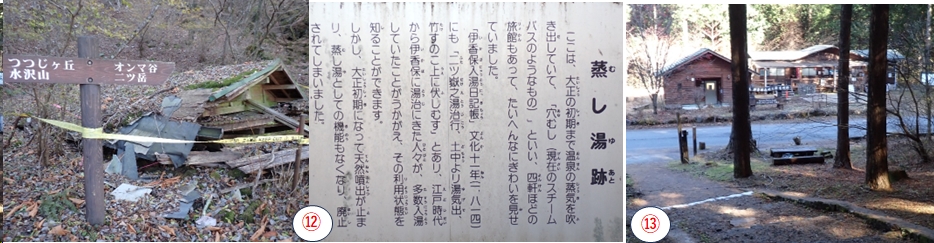 つつじヶ丘
水沢山
オンマ谷
二ツ岳
⑫
蒸し湯跡
むゆあと
ここは、大正の初期まで温泉の蒸気を吹
き出していて、「穴むし（現在のスチーム
バスのようなもの）」といい、四軒ほどの
旅館もあって、たいへんなにぎわいを見せ
ていました。
「伊香保入湯日記帳」文化十二年（一八一四）
にも「二ツ嶽之湯治行、土中より湯気出、
竹すのこ上に伏しむす」とあり、江戸時代
から伊香保に湯治にきた人々が、多数入湯
していたことがうかがえ、その利用状態を
知ることができます。
しかし、大正初期になって天然噴出が止ま
り、蒸し湯としての機能もなくなり、廃止
されてしまいました。
⑬